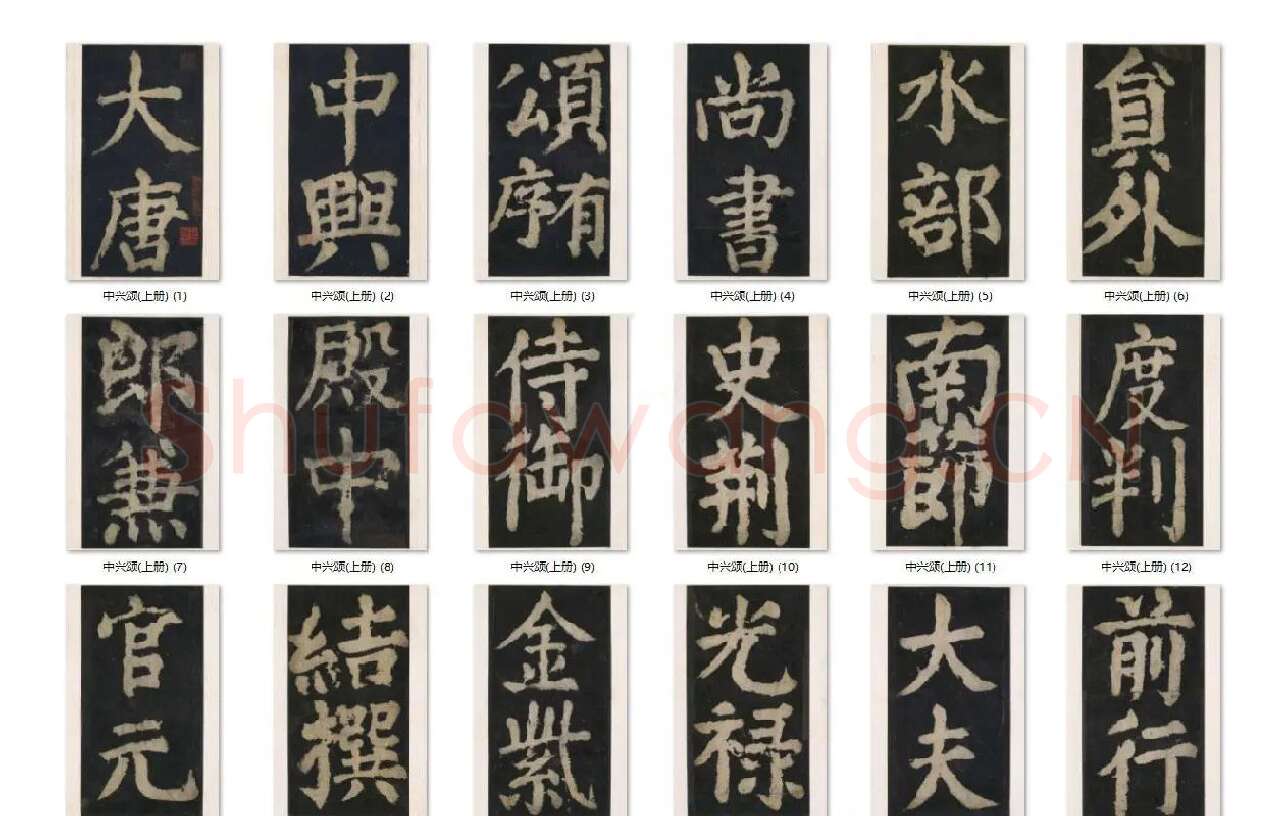 大唐
中興
頌有序
尚書
水部
貟外
中兴颂(上册) (1)
中兴颂(上册) (2)
中兴颂(上册) (3)
中兴颂(上册) (4)
中兴颂(上册) (5)
中兴颂(上册) (6)
郎兼
殿中
侍御
史荆
南莭
度判
Shufawang.CN
中兴颂(上册) (7)
中兴颂(上册) (8)
中兴颂(上册) (9)
中兴颂(上册) (10)
中兴颂(上册) (11)
中兴颂(上册) (12)
官元
結撰
金紫
光禄
大夫
前行